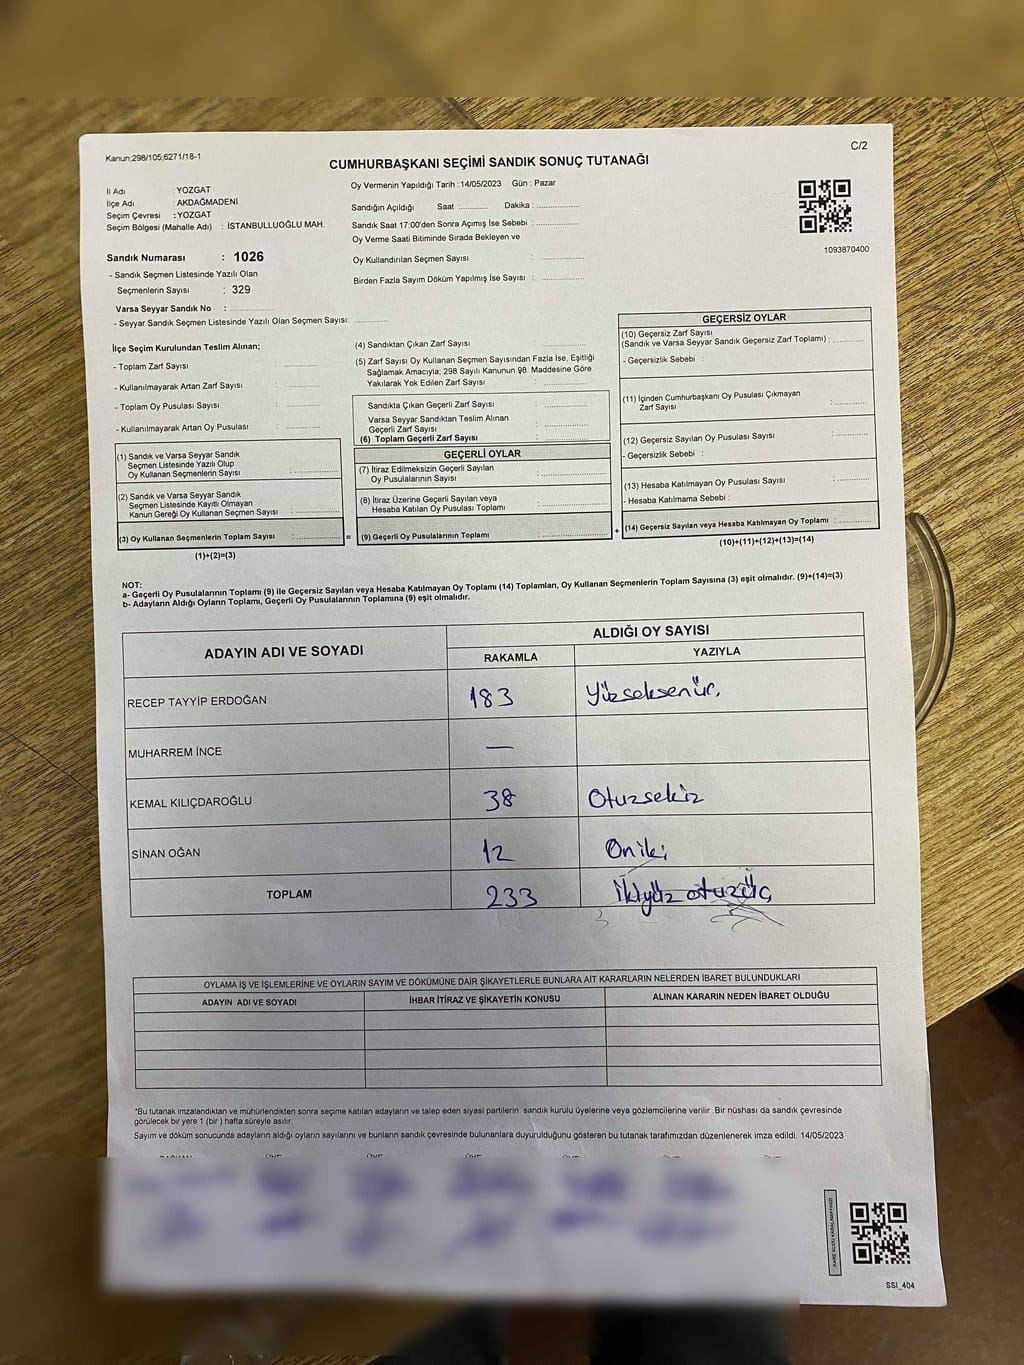 Kanun;298/105;6271/18-1
C/2
CUMHURBAŞKANI SEÇİMİ SANDIK SONUÇ TUTANAĞI
İl Adı : YOZGAT
İlçe Adı : AKDAĞMADENİ
Seçim Çevresi : YOZGAT
Seçim Bölgesi (Mahalle Adı) : İSTANBULLUOĞLU MAH.
Sandık Numarası : 1026
- Sandık Seçmen Listesinde Yazılı Olan
Seçmenlerin Sayısı : 329
Varsa Seyyar Sandık No : ..............
- Seyyar Sandık Seçmen Listesinde Yazılı Olan Seçmen Sayısı: ............
Oy Vermenin Yapıldığı Tarih : 14/05/2023 Gün : Pazar
Sandığın Açıldığı Saat : ........... Dakika : ..............
Sandık Saat 17:00'den Sonra Açımış İse Sebebi : ..............
Oy Verme Saati Bitiminde Sırada Bekleyen ve
Oy Kullandırılan Seçmen Sayısı : ..............
Birden Fazla Sayım Döküm Yapılmış İse Sayısı : ..............
1093870400
İlçe Seçim Kurulundan Teslim Alınan;
- Toplam Zarf Sayısı : ............
- Kullanılmayarak Artan Zarf Sayısı : ............
- Toplam Oy Pusulası Sayısı : ............
- Kullanılmayarak Artan Oy Pusulası : ............
(1) Sandık ve Varsa Seyyar Sandık
Seçmen Listesinde Yazılı Olup
Oy Kullanan Seçmenlerin Sayısı : ..............
(2) Sandık ve Varsa Seyyar Sandık
Seçmen Listesinde Kayıtlı Olmayan
Kanun Gereği Oy Kullanan Seçmen Sayısı : ..............
(3) Oy Kullanan Seçmenlerin Toplam Sayısı : ..............
(1)+(2)=(3)
(4) Sandıktan Çıkan Zarf Sayısı : ..............
(5) Zarf Sayısı Oy Kullanan Seçmen Sayısından Fazla İse, Eşitliği
Sağlamak Amacıyla; 298 Sayılı Kanunun 98. Maddesine Göre
Yakılarak Yok Edilen Zarf Sayısı : ..............
Sandıkta Çıkan Geçerli Zarf Sayısı : ..............
Varsa Seyyar Sandıktan Teslim Alınan
Geçerli Zarf Sayısı : ..............
(6) Toplam Geçerli Zarf Sayısı : ..............
GEÇERLİ OYLAR
(7) İtiraz Edilmeksizin Geçerli Sayılan
Oy Pusulalarının Sayısı : ..............
(8) İtiraz Üzerine Geçerli Sayılan veya
Hesaba Katılan Oy Pusulası Toplamı : ..............
= (9) Geçerli Oy Pusulalarının Toplamı : ..............
GEÇERSİZ OYLAR
(10) Geçersiz Zarf Sayısı
(Sandık ve Varsa Seyyar Sandık Geçersiz Zarf Toplamı) : ...........
- Geçersizlik Sebebi :
(11) İçinden Cumhurbaşkanı Oy Pusulası Çıkmayan
Zarf Sayısı : ...........
(12) Geçersiz Sayılan Oy Pusulası Sayısı : ...........
- Geçersizlik Sebebi :
(13) Hesaba Katılmayan Oy Pusulası Sayısı : ...........
- Hesaba Katılmama Sebebi :
+ (14) Geçersiz Sayılan veya Hesaba Katılmayan Oy Toplamı : ...........
(10)+(11)+(12)+(13)=(14)
NOT:
a- Geçerli Oy Pusulalarının Toplamı (9) ile Geçersiz Sayılan veya Hesaba Katılmayan Oy Toplamı (14) Toplamları, Oy Kullanan Seçmenlerin Toplam Sayısına (3) eşit olmalıdır. (9)+(14)=(3)
b- Adayların Aldığı Oyların Toplamı, Geçerli Oy Pusulalarının Toplamına (9) eşit olmalıdır.
ADAYIN ADI VE SOYADI ALDIĞI OY SAYISI
RAKAMLA YAZIYLA
RECEP TAYYİP ERDOĞAN 183 Yüzseksenüç
MUHARREM İNCE —
KEMAL KILIÇDAROĞLU 38 Otuzsekiz
SİNAN OĞAN 12 Oniki
TOPLAM 233 İkiyüz otuzüç
OYLAMA İŞ VE İŞLEMLERİNE VE OYLARIN SAYIM VE DÖKÜMÜNE DAİR ŞİKAYETLERLE BUNLARA AİT KARARLARIN NELERDEN İBARET BULUNDUKLARI
ADAYIN ADI VE SOYADI İHBAR İTİRAZ VE ŞİKAYETİN KONUSU ALINAN KARARIN NEDEN İBARET OLDUĞU
*Bu tutanak imzalandıktan ve mühürlendikten sonra seçime katılan adayların ve talep eden siyasi partilerin sandık kurulu üyelerine veya gözlemcilerine verilir. Bir nüshası da sandık çevresinde
görülecek bir yere 1 (bir) hafta süreyle asılır.
Sayım ve döküm sonucunda adayların aldığı oyların sayılarını ve bunların sandık çevresinde bulunanlara duyurulduğunu gösteren bu tutanak tarafımızdan düzenlenerek imza edildi. 14/05/2023
SSI_404